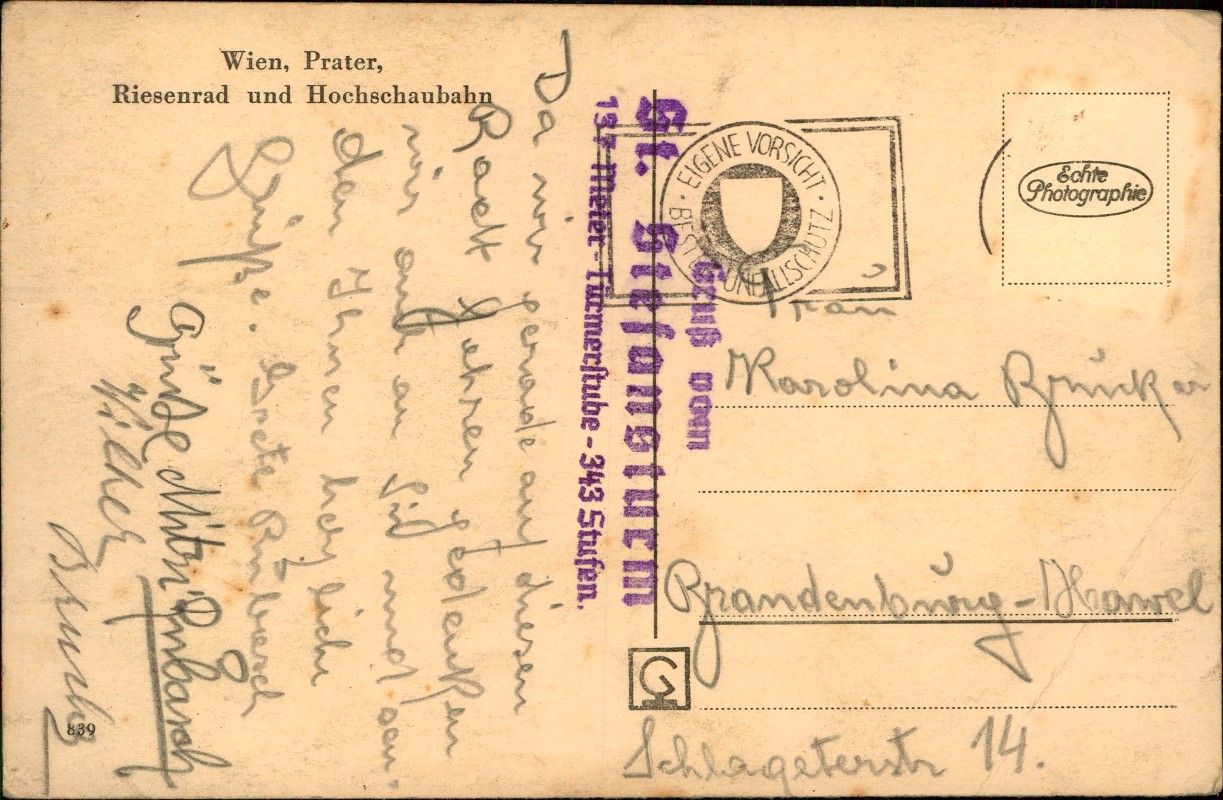 Wien, Prater,
Riesenrad und Hochschaubahn
Da wir gerade auf diesen
Radl fahren gedenken
wir auch an Sie und sen-
den Ihnen herzliche
Grüße. Grete Rimbasch
Grüße Mitzi Rimbasch
839
St. Stefansturm
137 Meter - Türmerstube - 343 Stufen.
Gruß vom
· EIGENE VORSICHT ·
BESTER UNFALLSCHUTZ
Echte
Photographie
Frau
Karolina Brünker
Brandenburg-Hawel
Schlageterstr 14.